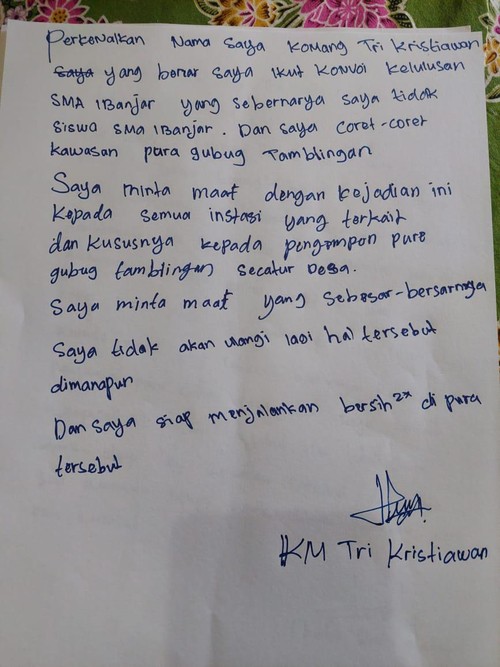 Perkenalkan Nama saya Komang Tri Kristiawan
saya yang benar saya ikut Konvoi kelulusan
SMA 1Banjar yang sebernarya saya tidak
siswa SMA 1Banjar. Dan saya coret-coret
kawasan pura gubug Tamblingan
Saya minta maaf dengan kejadian ini
kepada semua instasi yang terkait
dan kususnya kepada pengempon pura
gubug tamblingan secatur Desa.
Saya minta maaf yang sebesar-bersarnaya
Saya tidak akan ulangi lagi hal tersebut
dimanapun
Dan saya siap menjalankan bersih2x di pura
tersebut
KM Tri Kristiawan